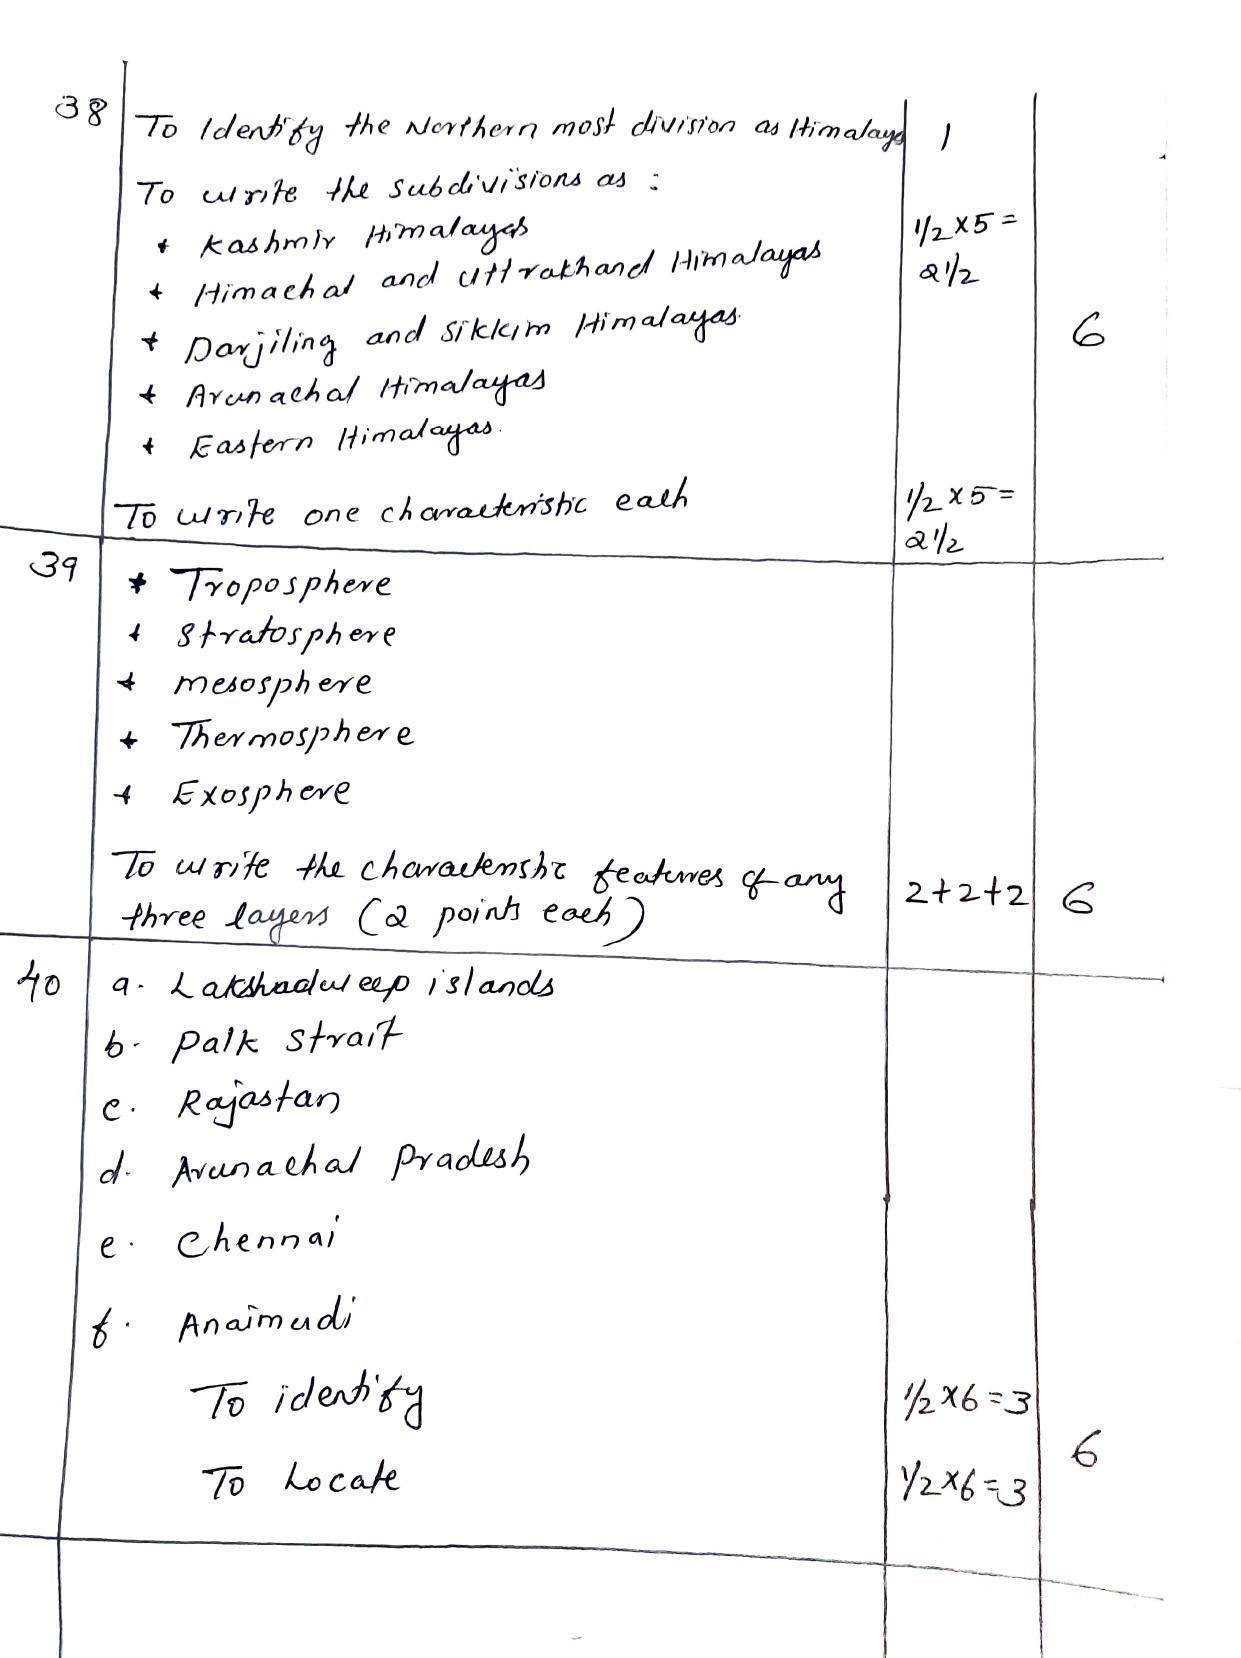 38 To Identify the Northern most division as Himalayas 1
To write the subdivisions as :
+ Kashmir Himalayas 1/2 x 5 =
+ Himachal and Uttrakhand Himalayas 2 1/2
+ Darjiling and Sikkim Himalayas. 6
+ Arunachal Himalayas
+ Eastern Himalayas.
To write one characteristic each 1/2 x 5 =
2 1/2
39 * Troposphere
+ Stratosphere
+ mesosphere
+ Thermosphere
+ Exosphere
To write the characteristic features of any 2+2+2 6
three layers (2 points each)
40 a. Lakshadweep islands
b. Palk Strait
c. Rajastan
d. Arunachal Pradesh
e. Chennai
f. Anaimudi
To identify 1/2 x 6 = 3
6
To Locate 1/2 x 6 = 3